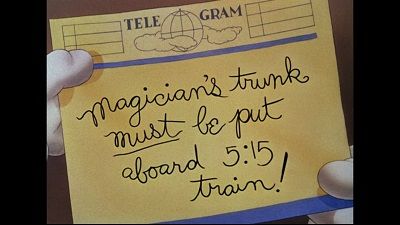 TELE GRAM
Magician's trunk
must be put
aboard 5:15
train!